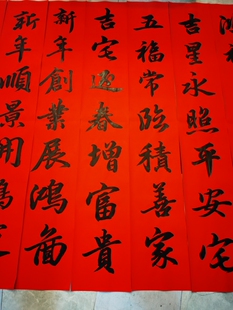 吉星永照平安宅
五福常臨積善家
吉宅迎春增富貴
新年創業展鴻圖
新年順景開鴻